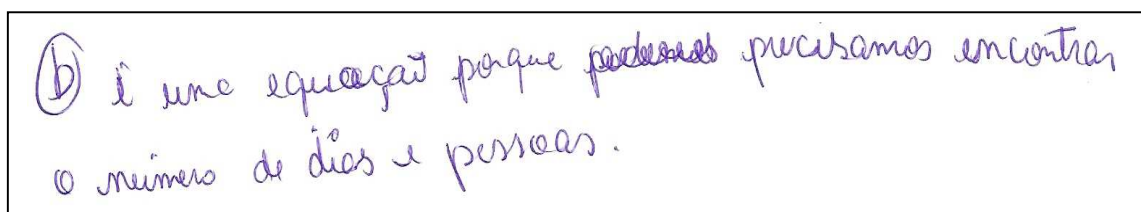 b é uma equação porque precisamos encontrar
o número de dias e pessoas.